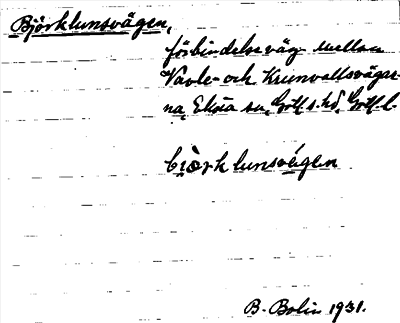 Björklunsvägen,
förbindelseväg mellan
Vavle- och Krunvallsvägar-
na, Eksta sn, Gotl. s. hd, Gotl. l.
biòrklunsvégen
B. Bolin 1931.